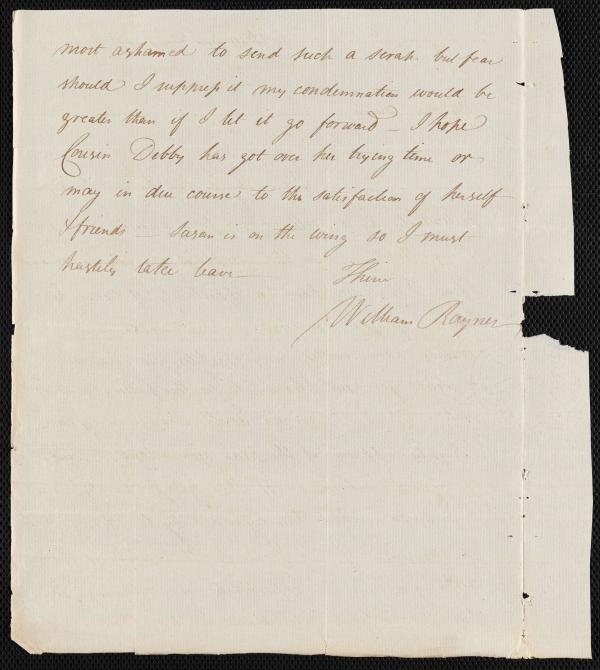 most ashamed to send such a scrap. but fear
should I suppress it my condemnation would be
greater than if I let it go forward – I hope
Cousin Debby has got over her trying time or
may in due course to the satisfaction of herself
& friends – Susan is on the wing so I must
hastily take leave
Thine
William Rayner